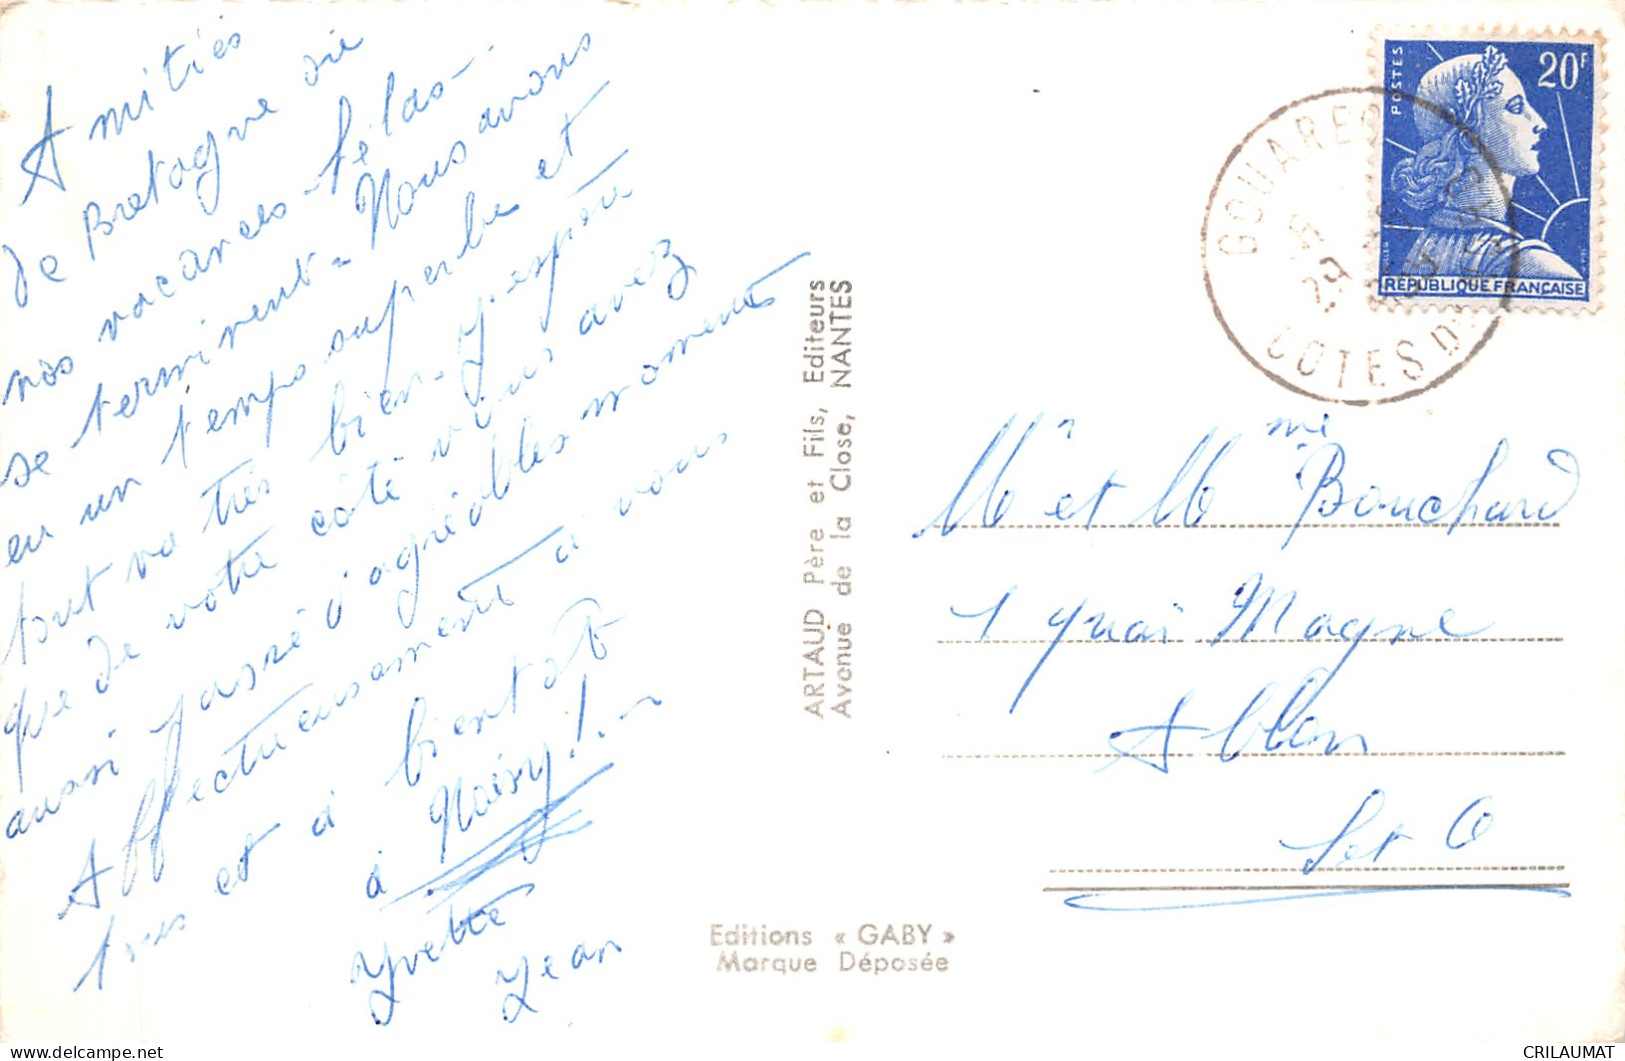 Amitiés
de Bretagne où
nos vacances hélas -
se terminent - Nous avons
eu un temps superbe et
tout va très bien - J'espère
que de votre côté vous avez
aussi passé d'agréables moments
Affectueusement à vous
tous et à bientôt
à Noisy ! -
Yvette
Jean
ARTAUD Père et Fils, Editeurs
Avenue de la Close, NANTES
Editions « GABY »
Marque Déposée
GOUAREC
COTES DU
POSTES
20F
REPUBLIQUE FRANÇAISE
Mr et Mme Bouchard
1 quai Magne
Ablon
S et O
www.delcampe.net
CRILAUMAT